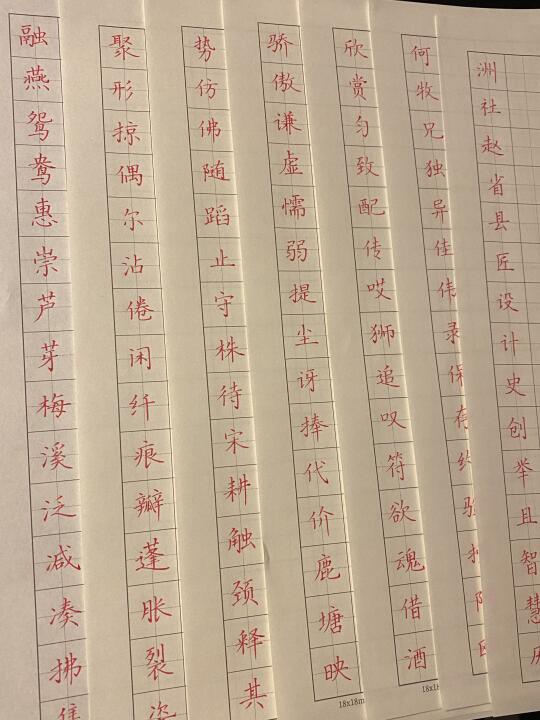 融燕鸳鸯惠崇芦芽梅溪泛减凑拂集
聚形掠偶尔沾倦闲纤痕瓣蓬胀裂姿
势仿佛随蹈止守株待宋耕触颈释其
骄傲谦虚懦弱提尘讶捧代价鹿塘映
18x18m
欣赏匀致配传哎狮追叹符欲魂借酒
18x18
何牧兄独异佳伟录保存约验
洲社赵省县匠设计史创举且智慧历